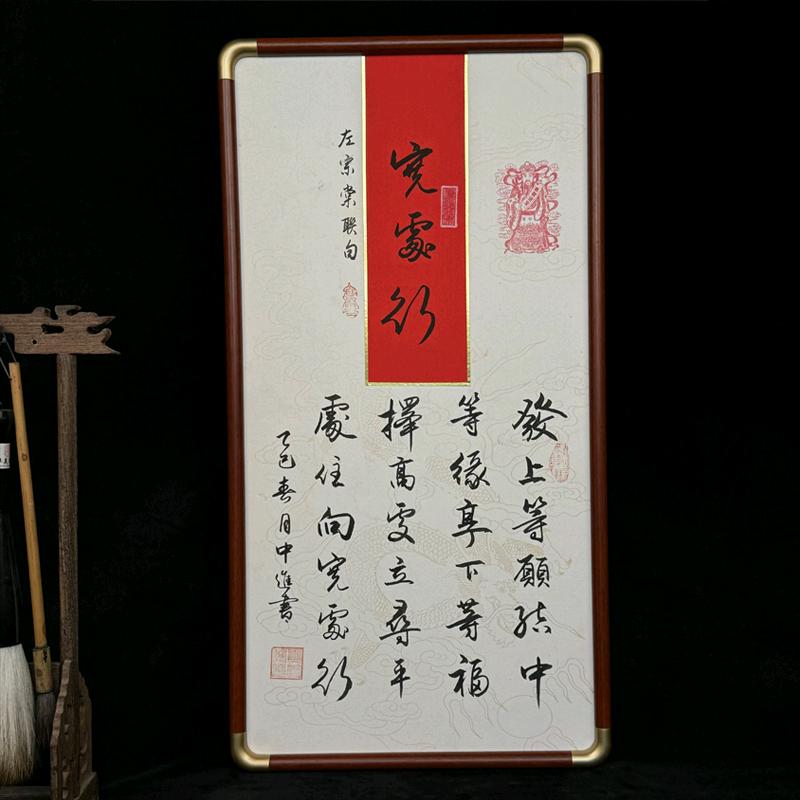 寬處行
左宗棠聯句
發上等願結中
等緣享下等福
擇高處立尋平
處住向寬處行
乙巳春月中進書